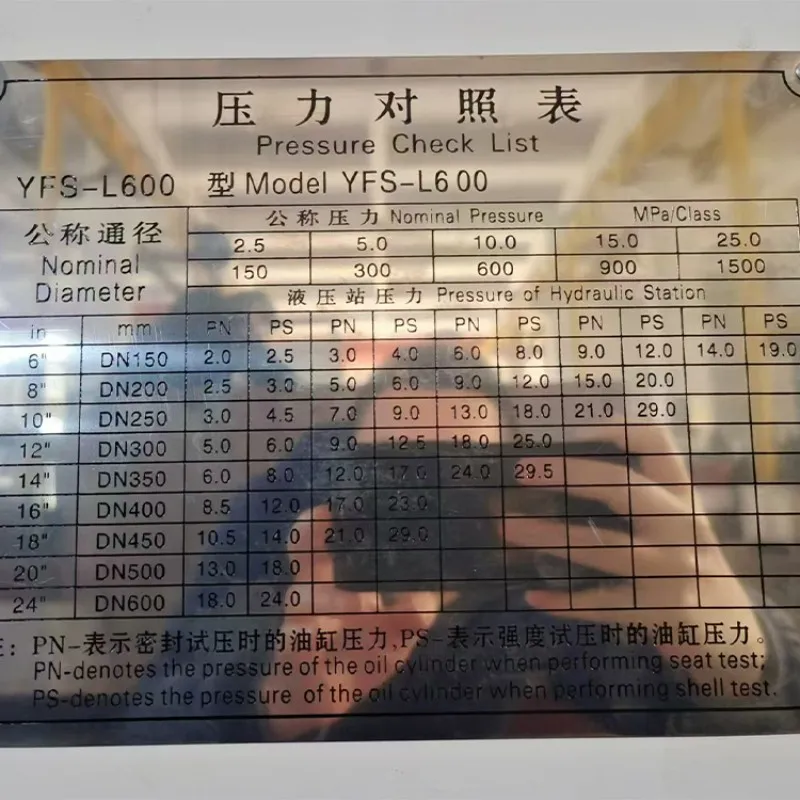 压力对照表
Pressure Check List
YFS-L600 型 Model YFS-L600
公称通径 Nominal Diameter
公称压力 Nominal Pressure MPa/Class
2.5 5.0 10.0 15.0 25.0
150 300 600 900 1500
液压站压力 Pressure of Hydraulic Station
in mm PN PS PN PS PN PS PN PS PN PS
6" DN150 2.0 2.5 3.0 4.0 6.0 8.0 9.0 12.0 14.0 19.0
8" DN200 2.5 3.0 5.0 6.0 9.0 12.0 15.0 20.0
10" DN250 3.0 4.5 7.0 9.0 13.0 18.0 21.0 29.0
12" DN300 5.0 6.0 9.0 12.5 18.0 25.0
14" DN350 6.0 8.0 12.0 17.0 24.0 29.5
16" DN400 8.5 12.0 17.0 23.0
18" DN450 10.5 14.0 21.0 29.0
20" DN500 13.0 18.0
24" DN600 18.0 24.0
: PN-表示密封试压时的油缸压力,PS-表示强度试压时的油缸压力。
PN-denotes the pressure of the oil cylinder when performing seat test;
PS-denotes the pressure of the oil cylinder when performing shell test.